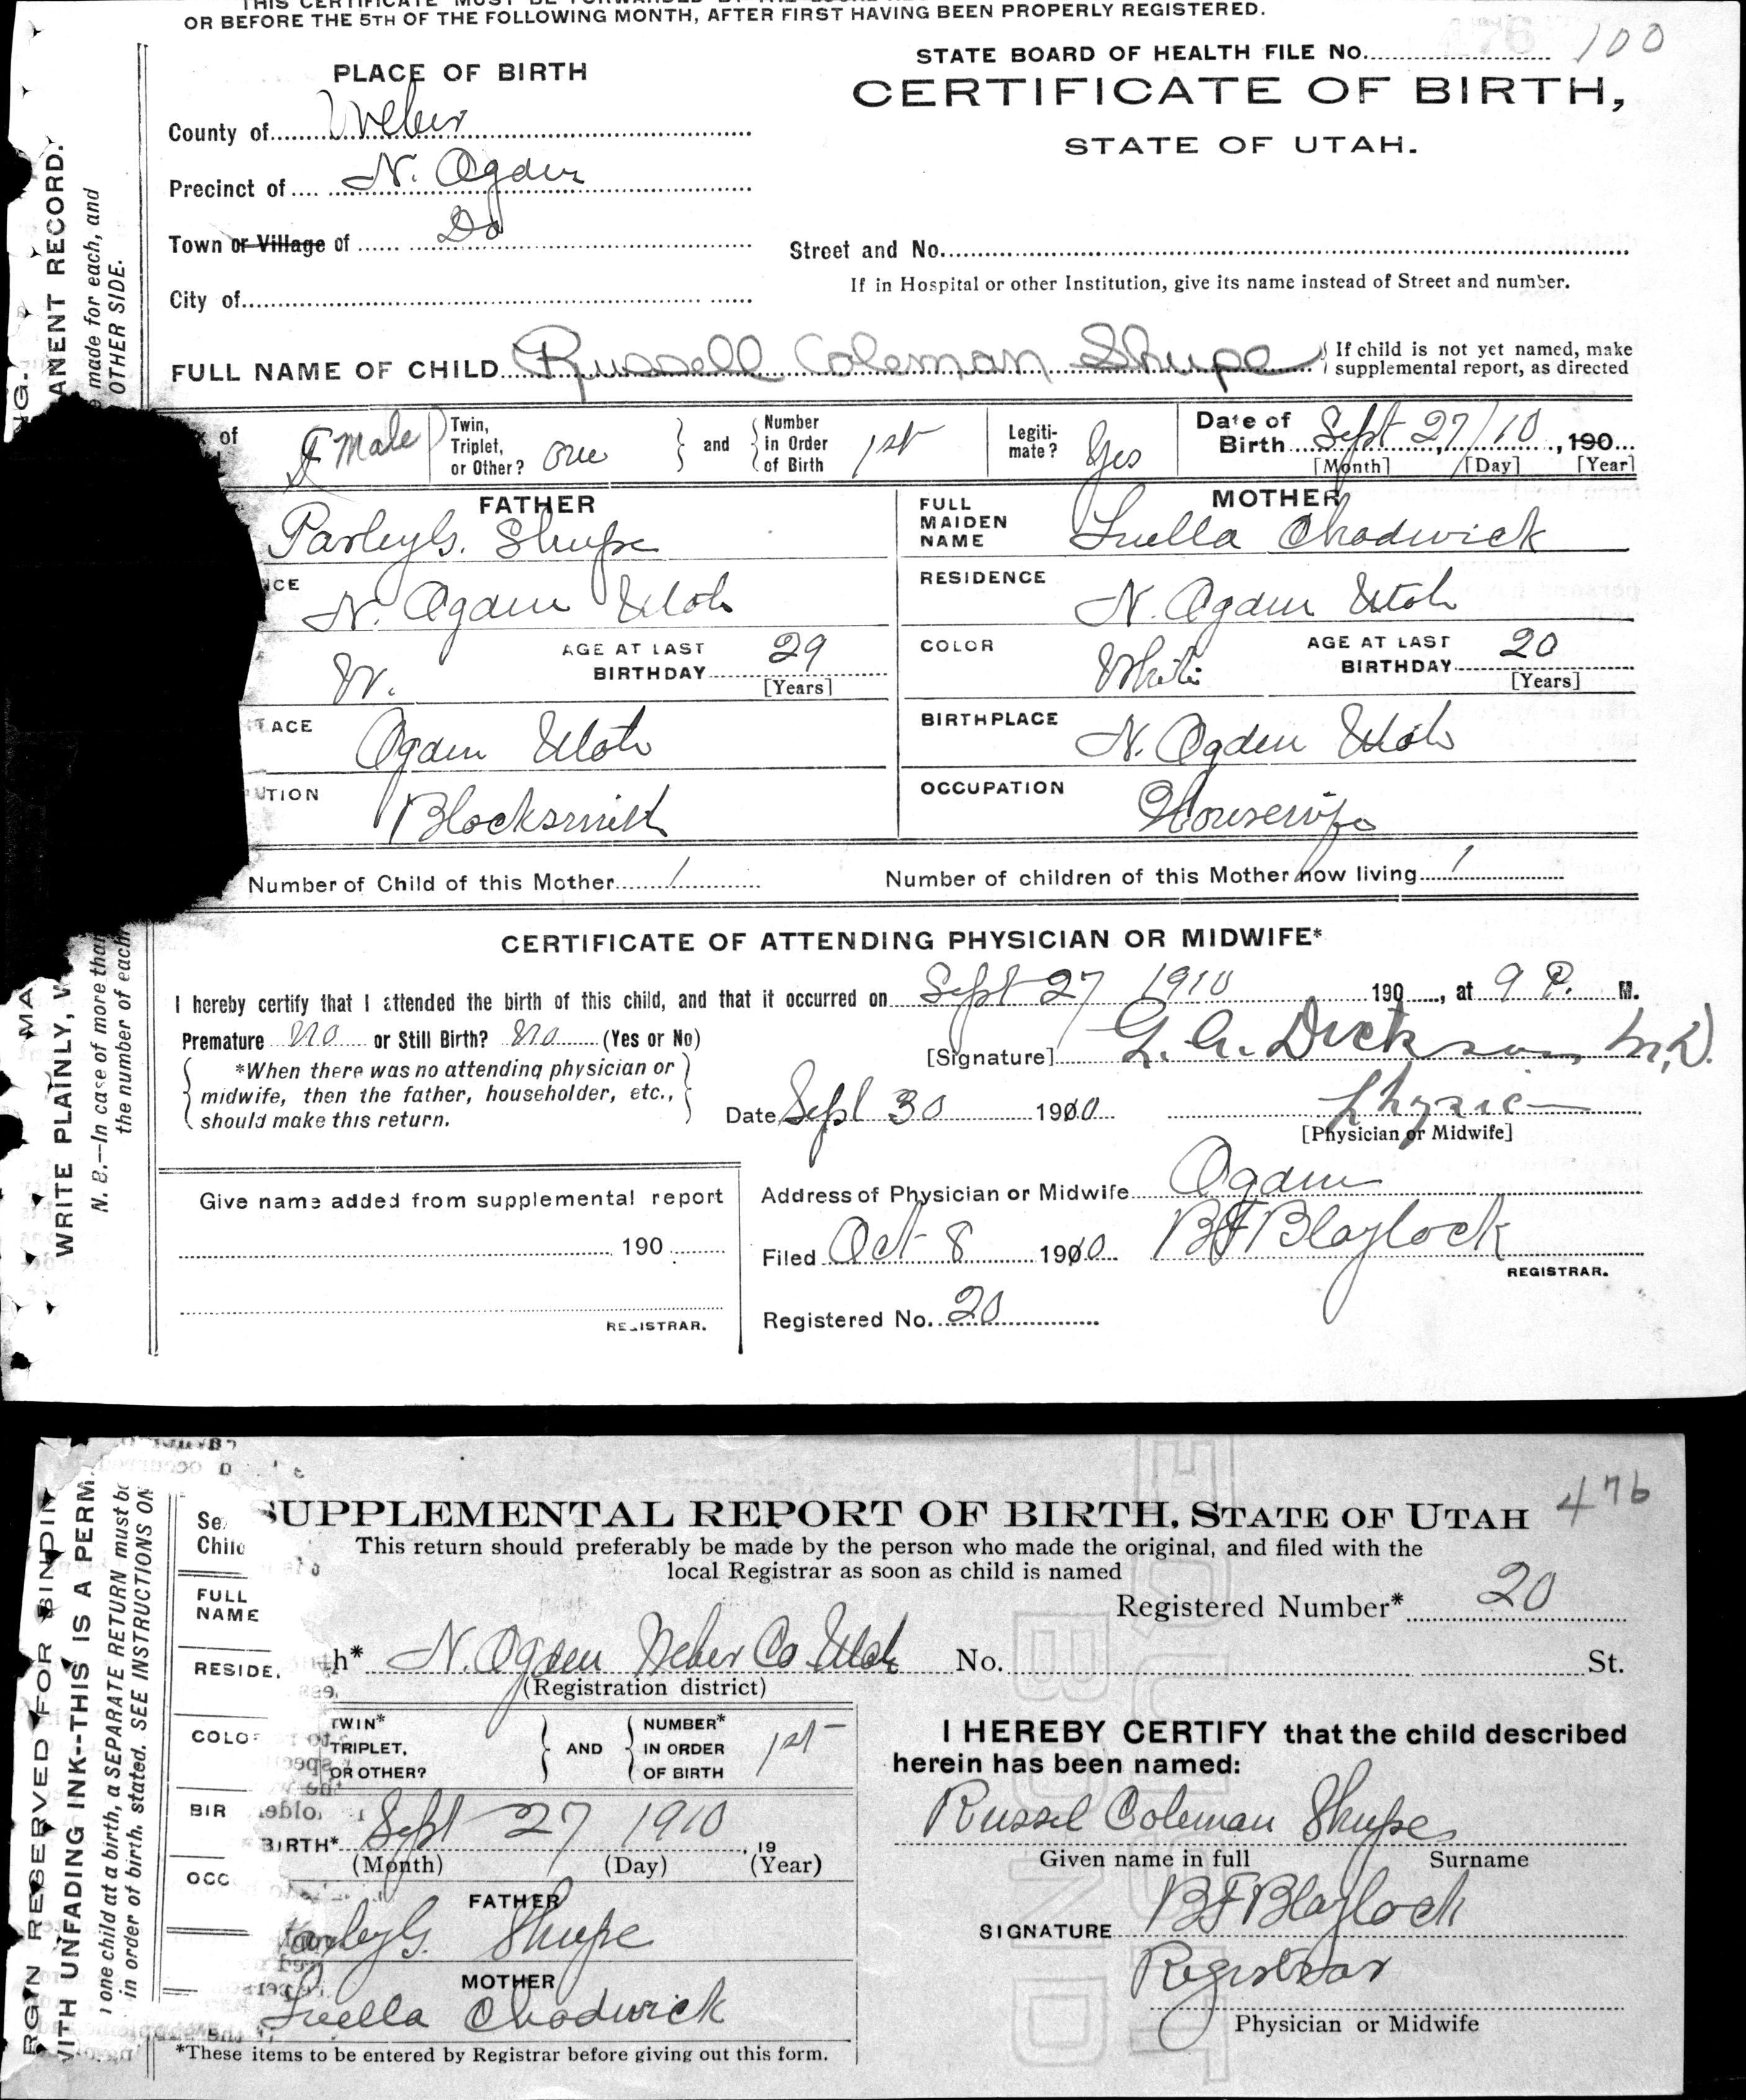 THIS CERTIFICATE MUST BE FORWARDED BY THE
OR BEFORE THE 5TH OF THE FOLLOWING MONTH, AFTER FIRST HAVING BEEN PROPERLY REGISTERED.
STATE BOARD OF HEALTH FILE No. 476 100
PLACE OF BIRTH
CERTIFICATE OF BIRTH,
STATE OF UTAH.
County of Weber
Precinct of N. Ogden
Town or Village of Do
Street and No.
If in Hospital or other Institution, give its name instead of Street and number.
City of
FULL NAME OF CHILD Russell Coleman Shupe
If child is not yet named, make supplemental report, as directed
of Male
Twin, Triplet, or Other? one
and
Number in Order of Birth 1st
Legiti-mate? Yes
Date of Birth Sept 27/10, 190
[Month] [Day] [Year]
FATHER
Parley G. Shupe
MOTHER
FULL MAIDEN NAME Luella Chadwick
CE N. Ogden Utah
RESIDENCE N. Ogden Utah
W.
AGE AT LAST BIRTHDAY 29
[Years]
COLOR White
AGE AT LAST BIRTHDAY 20
[Years]
ACE Ogden Utah
BIRTHPLACE N. Ogden Utah
TION Blacksmith
OCCUPATION Housewife
Number of Child of this Mother 1
Number of children of this Mother now living 1
CERTIFICATE OF ATTENDING PHYSICIAN OR MIDWIFE*
I hereby certify that I attended the birth of this child, and that it occurred on Sept 27 1910 190, at 9 P. M.
Premature no or Still Birth? no (Yes or No)
[Signature] G. A. Dickson M.D.
*When there was no attending physician or
midwife, then the father, householder, etc.,
should make this return.
Date Sept 30 1910
Physic
[Physician or Midwife]
Give name added from supplemental report
190
REGISTRAR.
Address of Physician or Midwife Ogden
Filed Oct 8 1910
BF Blaylock
REGISTRAR.
Registered No. 20
NG.
ANENT RECORD.
made for each, and
OTHER SIDE.
MA
WRITE PLAINLY, W
N. B.—In case of more than
the number of each
SUPPLEMENTAL REPORT OF BIRTH, STATE OF UTAH 476
This return should preferably be made by the person who made the original, and filed with the
local Registrar as soon as child is named
Registered Number* 20
th* N. Ogden Weber Co Utah No. St.
(Registration district)
TWIN* TRIPLET, OR OTHER?
AND
NUMBER* IN ORDER OF BIRTH 1st
BIRTH* Sept 27 1910, 19
(Month) (Day) (Year)
FATHER
Parley G. Shupe
MOTHER
Luella Chadwick
*These items to be entered by Registrar before giving out this form.
I HEREBY CERTIFY that the child described
herein has been named:
Russel Coleman Shupe
Given name in full Surname
SIGNATURE BF Blaylock
Registrar
Physician or Midwife
FULL NAME
RESIDE
COLO
BIR
OCC
RGIN RESERVED FOR BINDIN
WITH UNFADING INK--THIS IS A PERM
one child at a birth, a SEPARATE RETURN must be
in order of birth, stated. SEE INSTRUCTIONS ON